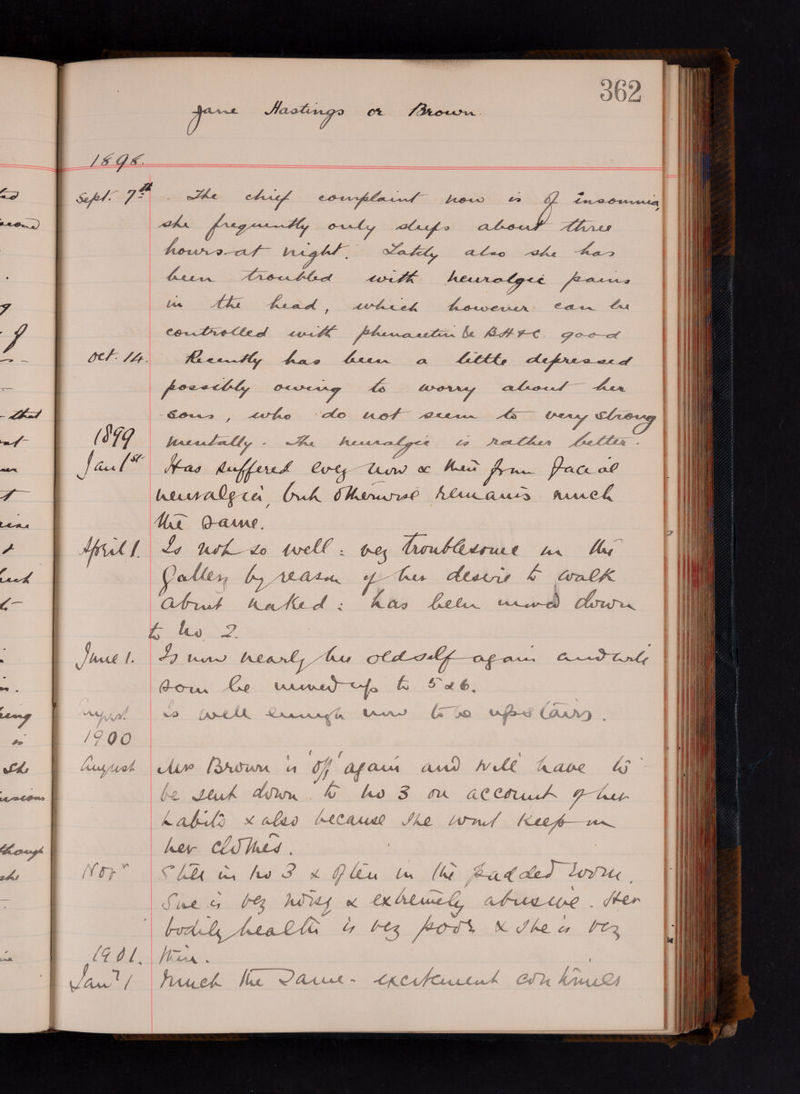 362
Jane Hastings or Brown
1898.
Sept. 7th The chief complaint now is of insomnia,
she frequently only sleeps about three
hours at night. Lately also she has
been troubled with neuralgic pains
in the head, which however can be
controlled with phenacetin good
Oct. 14. Recently has been a little depressed
possibly owing to worry about her
sons, who do not seem to very strong
1899 mentally. The neuralgia is rather better.
Jan 1st Has suffered every now & then from facial
neuralgia, but otherwise remains much
the same.
April 1. Is not so well: very troublesome in the
Gallery by reason of her desire to walk
about naked: has been moved down
to No 2.
June 1. Is now nearly her old self again and will
soon be moved up to 5 & 6.
August Is well enough now to be upstairs.
1900
August Mrs Brown is 'off' again and will have to
be sent down to No 3 on account of her
habits & also because she wont keep on
her clothes.
Novr Still in No 3 & often in the padded room.
She is very noisy & extremely abusive. Her
bodily health is very poor & she is very
1901. thin.
Jany 1 Much the same - excitement continues